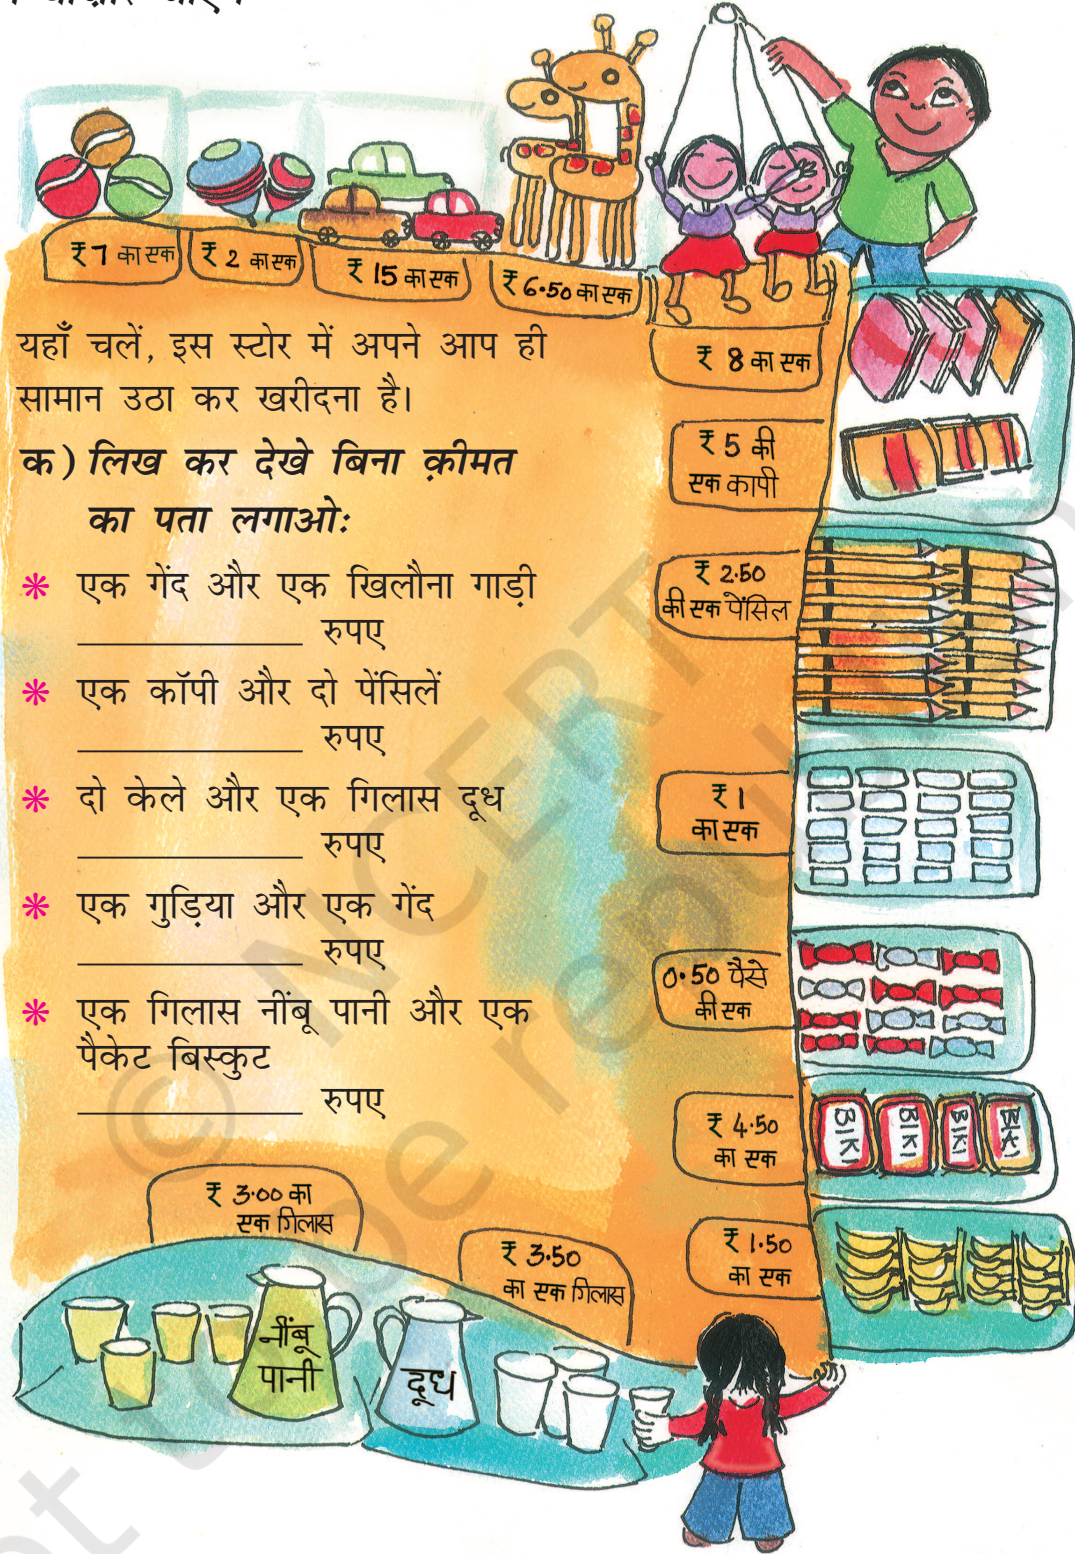 ₹ 7 का एक
₹ 2 का एक
₹ 15 का एक
₹ 6.50 का एक
₹ 8 का एक
यहाँ चलें, इस स्टोर में अपने आप ही
सामान उठा कर खरीदना है।
क) लिख कर देखे बिना क़ीमत
का पता लगाओः
* एक गेंद और एक खिलौना गाड़ी
__________ रुपए
* एक कॉपी और दो पेंसिलें
__________ रुपए
* दो केले और एक गिलास दूध
__________ रुपए
* एक गुड़िया और एक गेंद
__________ रुपए
* एक गिलास नींबू पानी और एक
पैकेट बिस्कुट
__________ रुपए
₹ 5 की
एक कापी
₹ 2.50
की एक पेंसिल
₹ 1
का एक
0.50 पैसे
की एक
₹ 4.50
का एक
BIKI
BIKI
BIKI
BIKI
₹ 1.50
का एक
₹ 3.00 का
एक गिलास
₹ 3.50
का एक गिलास
नींबू
पानी
दूध
© NCERT